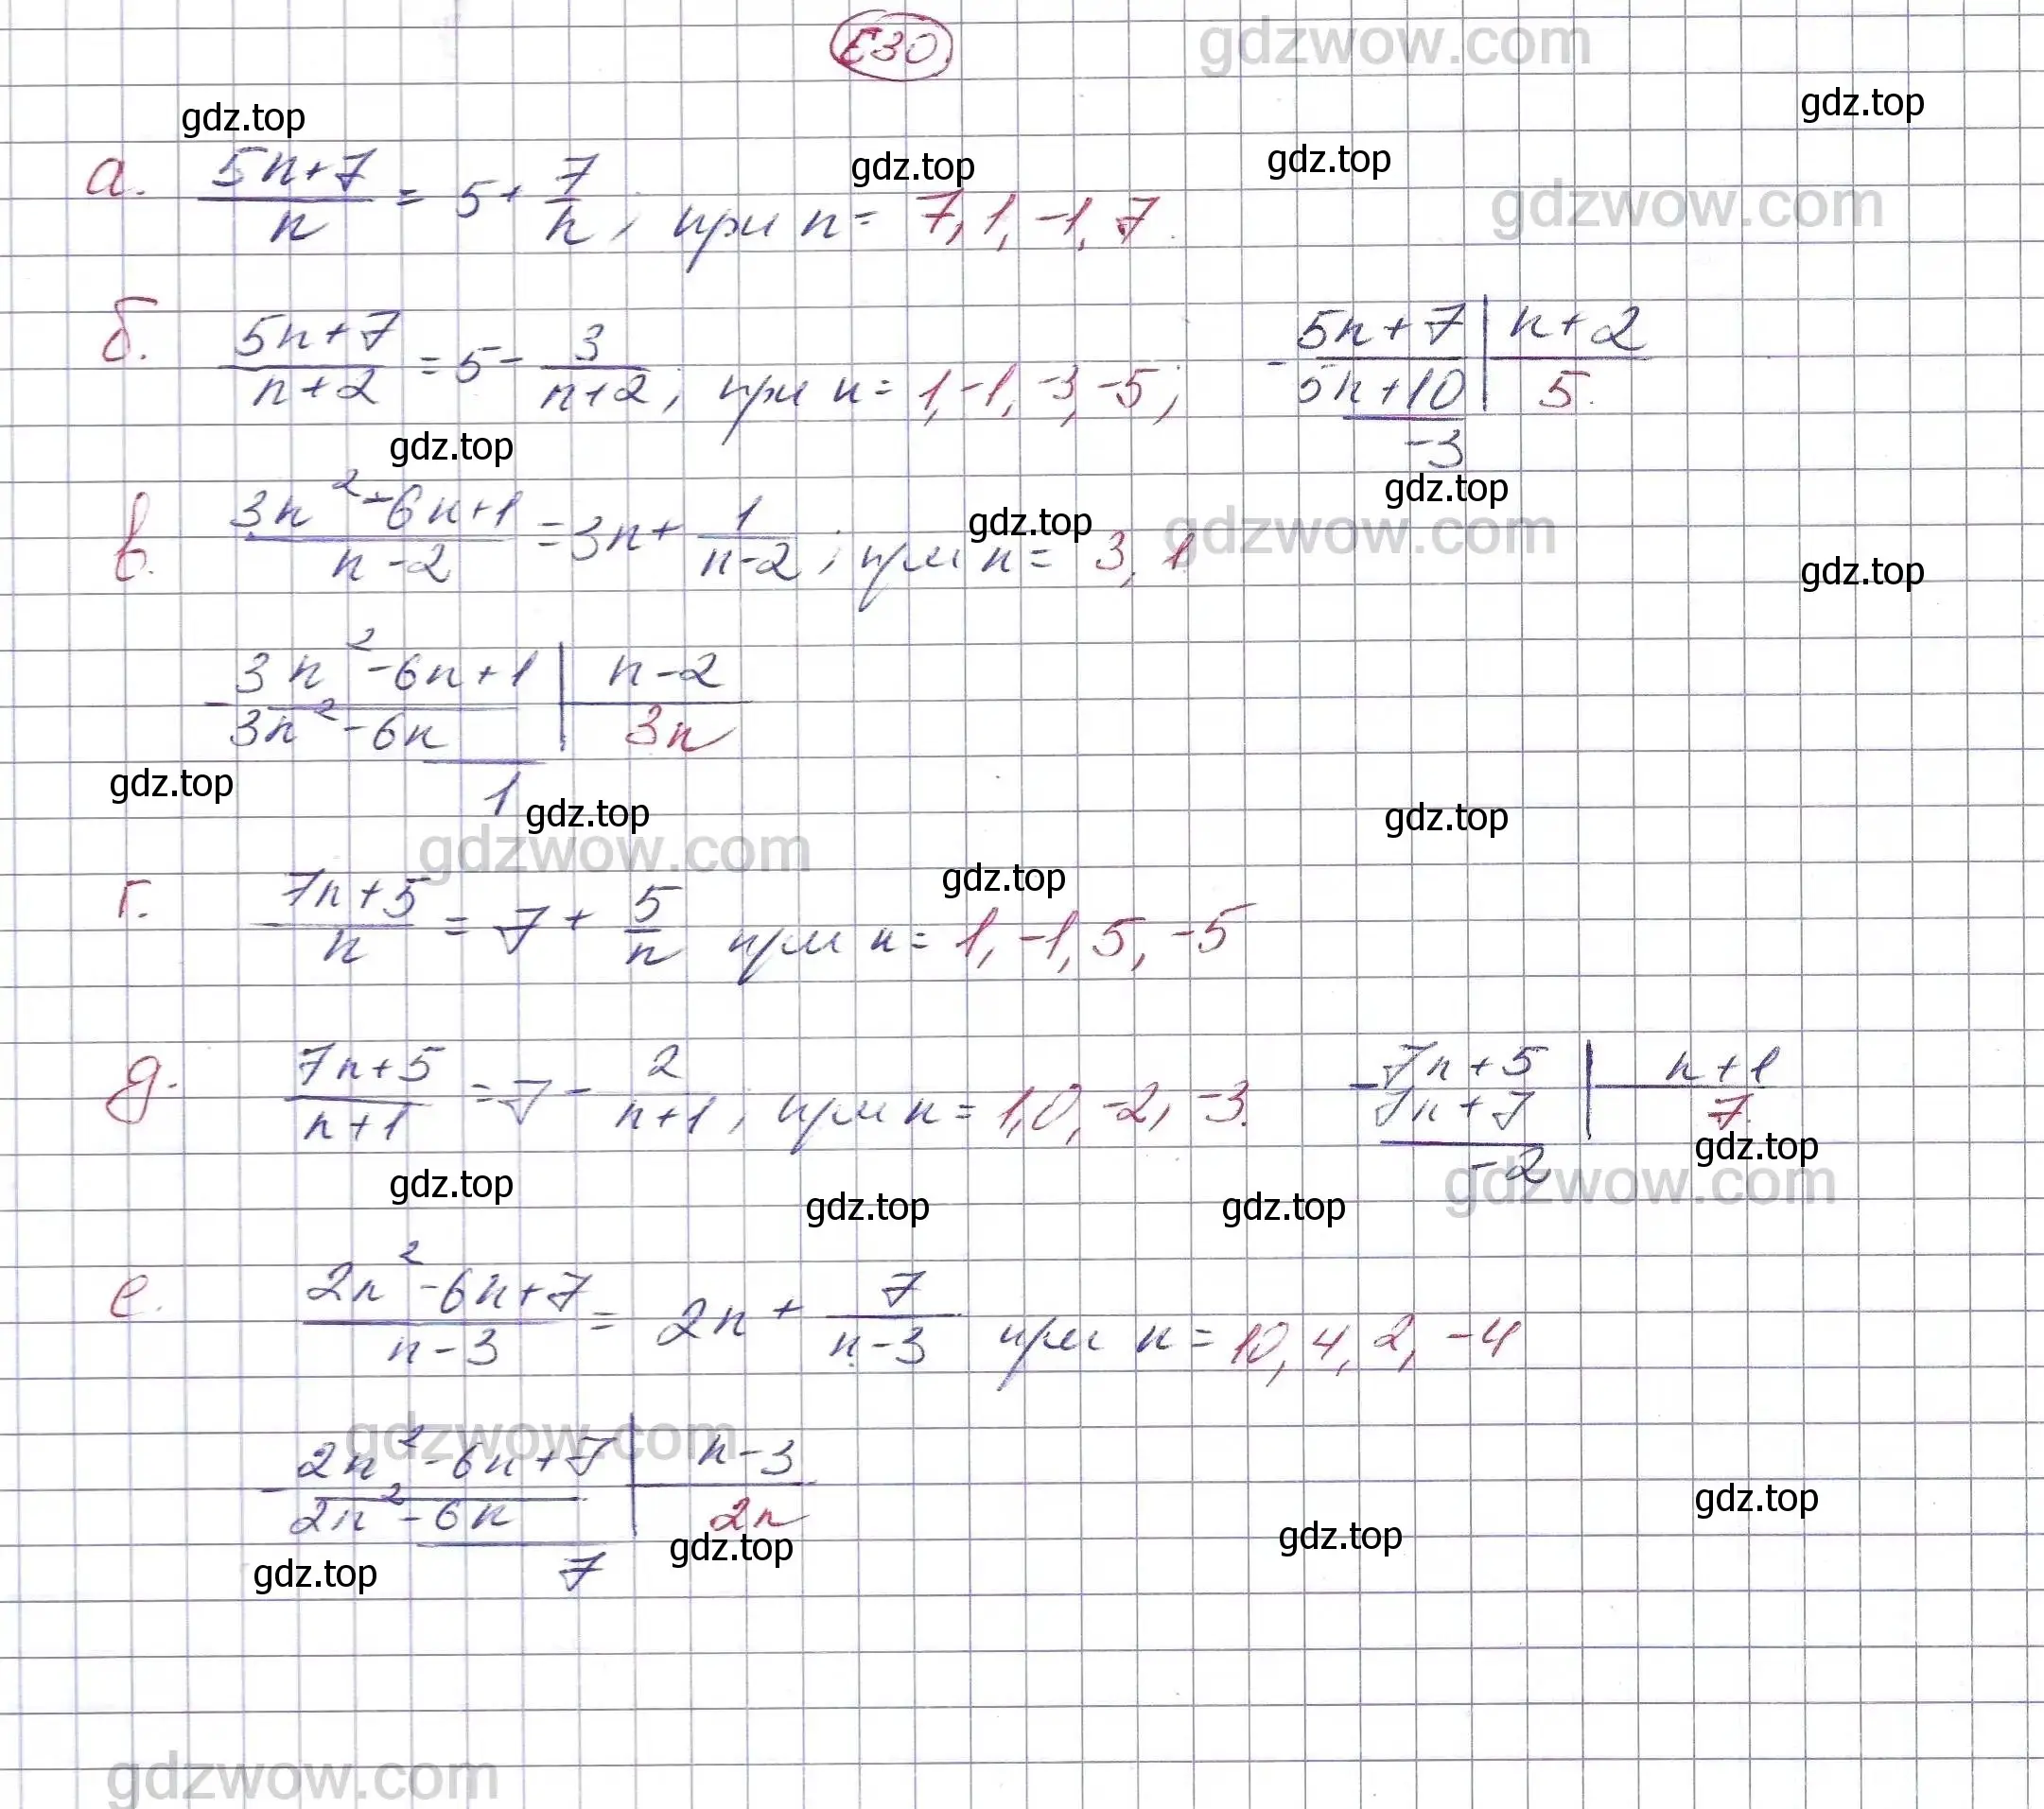 E30
gdzwow.com
gdz.top
gdz.top
а. (5n+7)/n = 5 + 7/n, при n = 7, 1, -1, 7.
gdz.top
gdz.top
gdzwow.com
б. (5n+7)/(n+2) = 5 - 3/(n+2); при n = 1, -1, -3, -5;
- 5n+7 | n+2
5n+10 | 5.
-3
gdz.top
gdz.top
в. (3n²-6n+1)/(n-2) = 3n + 1/(n-2); при n = 3, 1
gdz.top
gdzwow.com
gdz.top
- 3n²-6n+1 | n-2
3n²-6n | 3n
1
gdz.top
gdz.top
gdz.top
gdzwow.com
г. (7n+5)/n = 7 + 5/n при n = 1, -1, 5, -5
gdz.top
д. (7n+5)/(n+1) = 7 - 2/(n+1), при n = 1, 0, -2, -3.
- 7n+5 | n+1
7n+7 | 7.
-2
gdz.top
gdzwow.com
gdz.top
gdz.top
gdz.top
е. (2n²-6n+7)/(n-3) = 2n + 7/(n-3) при n = 10, 4, 2, -4
gdzwow.com
- 2n²-6n+7 | n-3
2n²-6n | 2n
7
gdz.top
gdz.top
gdz.top
gdz.top
gdzwow.com